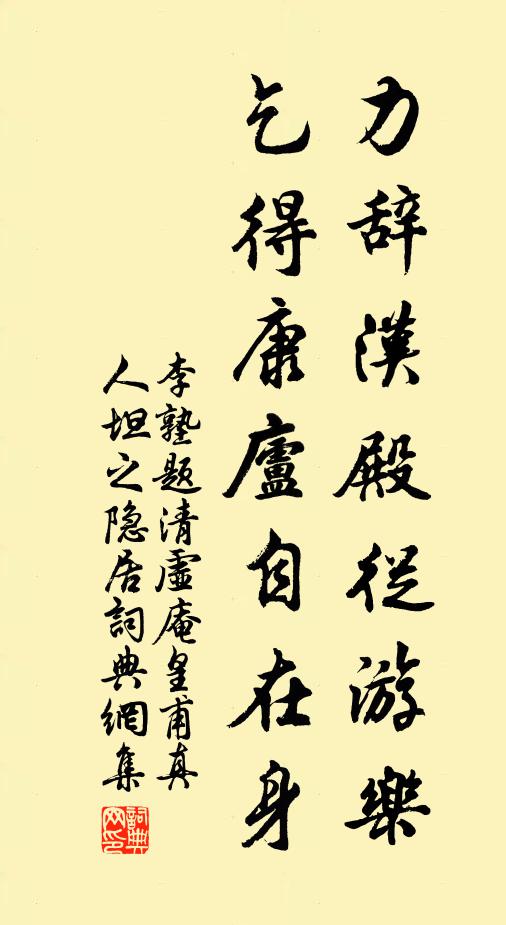 力辞漢殿從游樂
乞得康廬自在身
李塾题清虛庵皇甫真
人坦之隐居詞典網集
詞典
网印